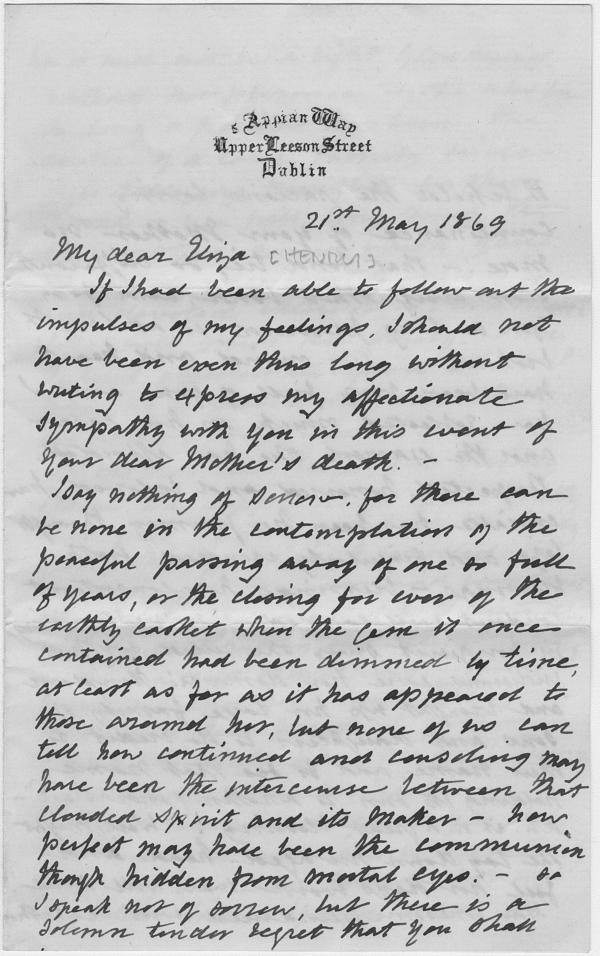 5 Appian Way
Upper Leeson Street
Dublin
21st May 1869
My dear Eliza [HENRY].
If I had been able to follow out the
impulses of my feelings, I should not
have been even thus long without
writing to express my affectionate
Sympathy with you in this event of
your dear Mother's death. –
I say nothing of sorrow, for there can
be none in the contemplation of the
peaceful passing away of one so full
of years, or the closing for ever of the
earthly casket when the gem it once
contained had been dimmed by time,
at least as far as it has appeared to
those around her, but none of us can
tell how continued and consoling may
have been the intercourse between that
clouded spirit and its Maker – how
perfect may have been the communion
though hidden from mortal eyes. – so
I speak not of sorrow, but there is a
solemn tender regret that you shall